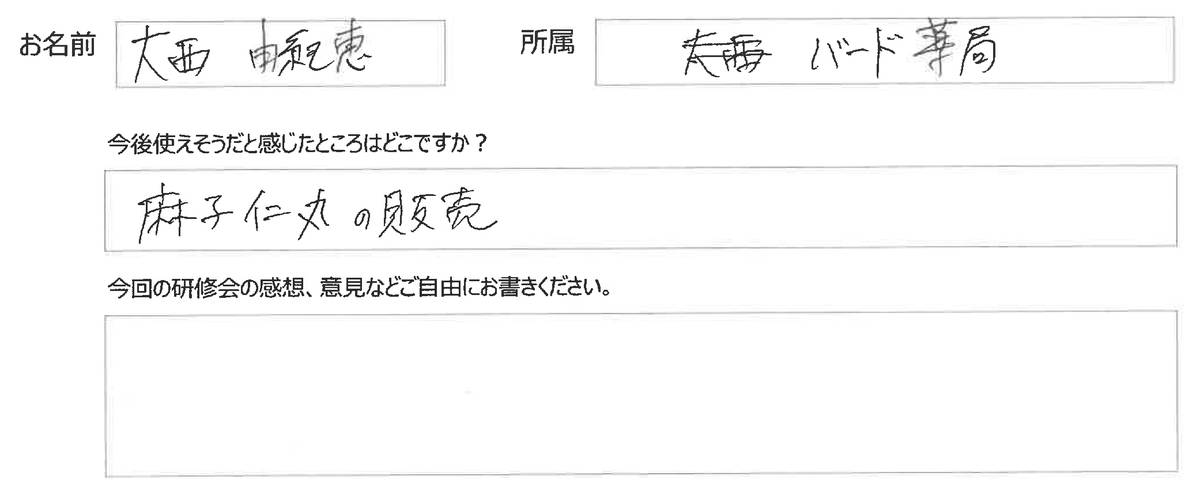 お名前 大西 由紀恵 所属 大西 バード薬局
今後使えそうだと感じたところはどこですか？
麻子仁丸の販売
今回の研修会の感想、意見などご自由にお書きください。